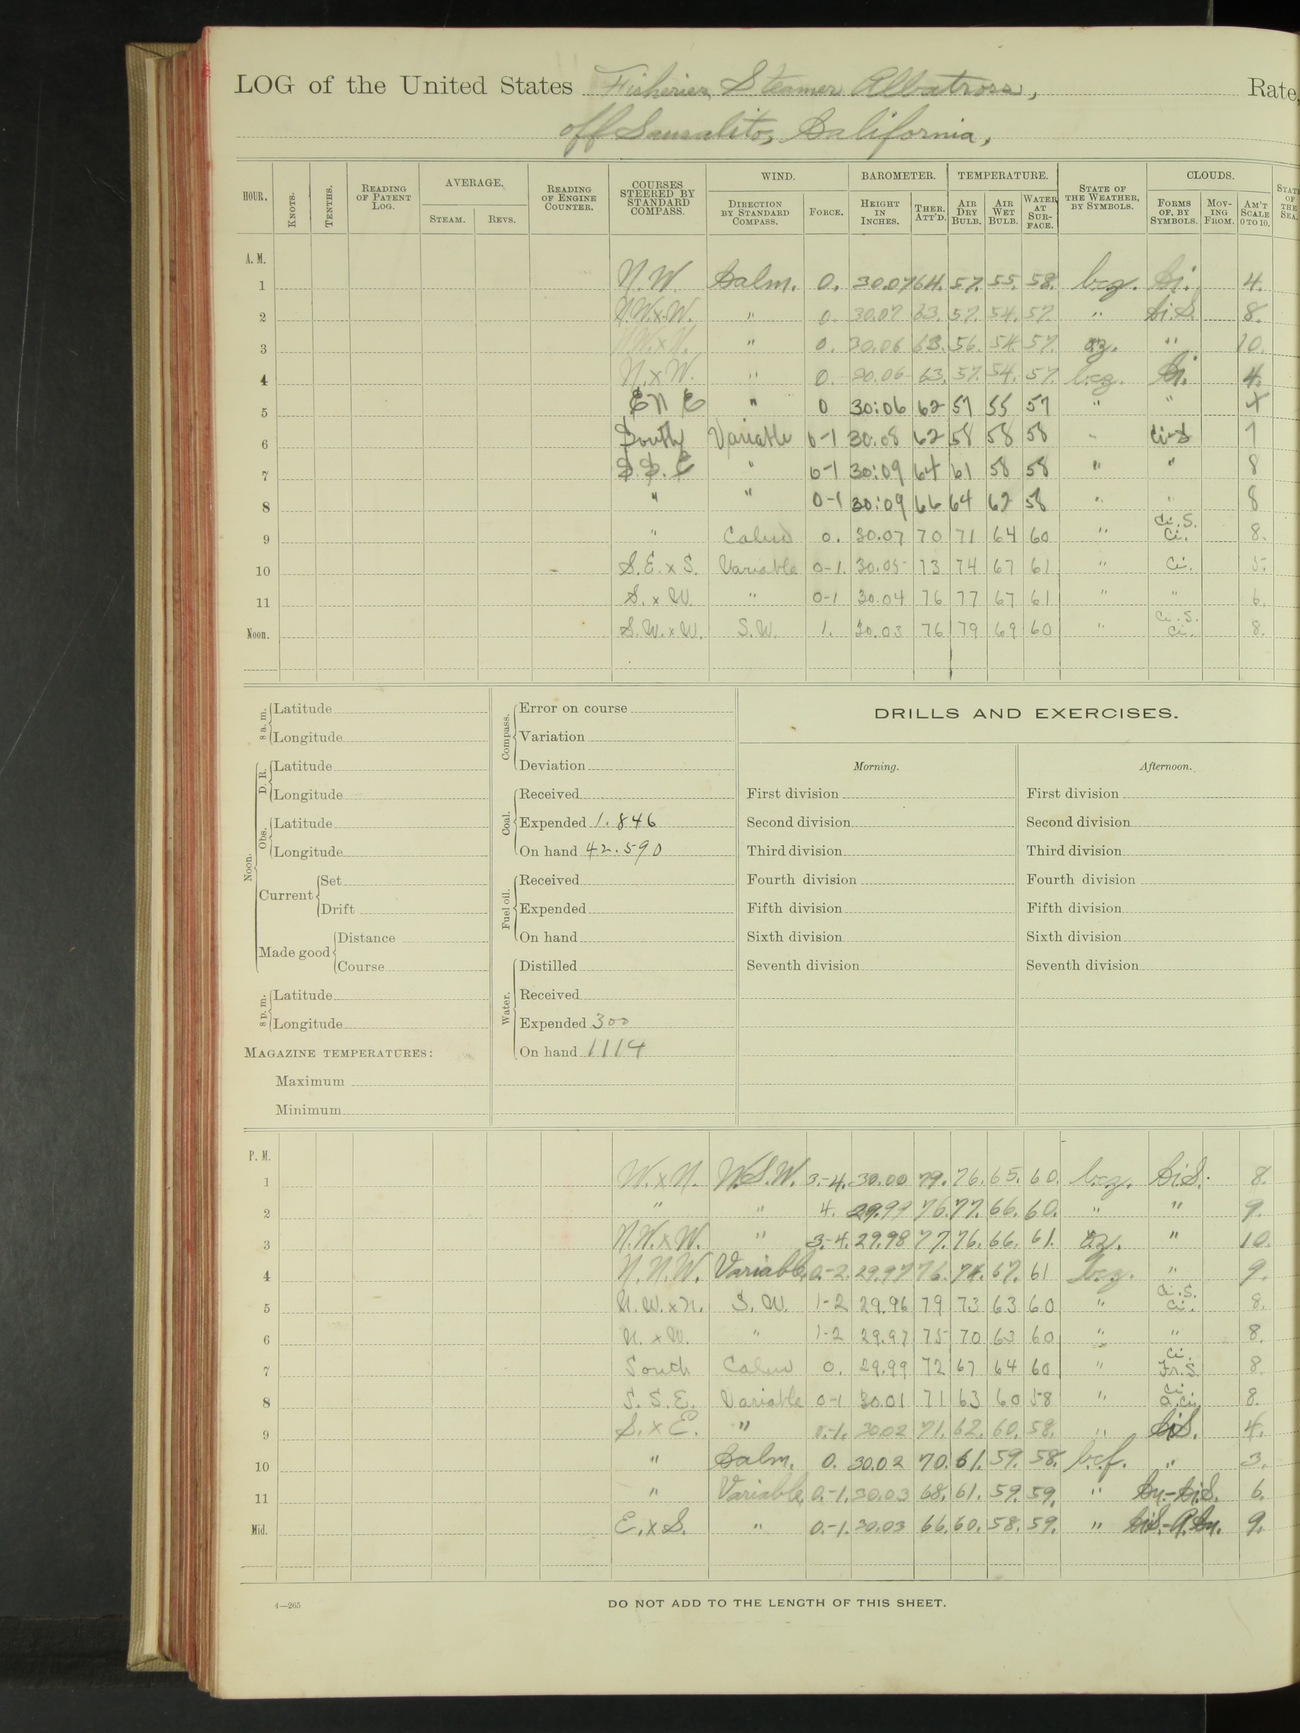 LOG of the United States Fisheries Steamer Albatross, Rate,
off Sausalito, California,
HOUR. KNOTS. TENTHS. READING OF PATENT LOG. AVERAGE. STEAM. REVS. READING OF ENGINE COUNTER. COURSES STEERED BY STANDARD COMPASS. WIND. DIRECTION BY STANDARD COMPASS. FORCE. BAROMETER. HEIGHT IN INCHES. THER. ATT'D. TEMPERATURE. AIR DRY BULB. AIR WET BULB. WATER AT SURFACE. STATE OF THE WEATHER, BY SYMBOLS. CLOUDS. FORMS OF, BY SYMBOLS. MOVING FROM. AM'T SCALE 0 TO 10. STATE OF THE SEA.
A. M.
1 N.W. Calm. 0. 30.07 64. 57. 55. 58. bcz. Ci. 4.
2 N.W.xW. " 0. 30.07 63. 57. 54. 57. " Ci.S. 8.
3 " 0. 30.06 63. 56. 54. 57. oz. " 10.
4 N.xW. " 0. 30.06 63. 57. 54. 57. bcz. Ci. 4.
5 ENE " 0 30:06 62 57 55 57 " "
6 South Variable 0-1 30.08 62 58 58 58 " Ci-S 7
7 S.S.E " 0-1 30:09 64 61 58 58 " " 8
8 " " 0-1 30:09 66 64 62 58 " " 8
9 " Calm 0. 30.07 70 71 64 60 " Ci.S. Ci. 8.
10 S.E.xS. Variable 0-1. 30.05 73 74 67 61 " Ci. 5.
11 S.xW. " 0-1 30.04 76 77 67 61 " " 6.
Noon. S.W.xW. S.W. 1. 30.03 76 79 69 60 " Ci.S. Ci. 8.
8 a. m. Latitude
Longitude
Noon. D. R. Latitude
Longitude
Obs. Latitude
Longitude
Current Set
Drift
Made good Distance
Course
8 p. m. Latitude
Longitude
MAGAZINE TEMPERATURES:
Maximum
Minimum
Compass. Error on course
Variation
Deviation
Coal. Received
Expended 1.846
On hand 42.590
Fuel oil. Received
Expended
On hand
Water. Distilled
Received
Expended 300
On hand 1114
DRILLS AND EXERCISES.
Morning. Afternoon.
First division First division
Second division Second division
Third division Third division
Fourth division Fourth division
Fifth division Fifth division
Sixth division Sixth division
Seventh division Seventh division
P. M.
1 W.xN. W.S.W. 3-4. 30.00 79. 76. 65. 60. bcz. Ci.S. 8.
2 " " 4. 29.99 76. 77. 66. 60. " " 9.
3 N.W.xW. " 3-4. 29.98 77. 76. 66. 61. oz. " 10.
4 N.N.W. Variable 0-2. 29.97 76. 74. 67. 61 bcz. " 9.
5 N.W.xN. S.W. 1-2 29.96 79 73 63 60 " Ci.S. Ci. 8.
6 N.xW. " 1-2 29.97 75 70 63 60 " " 8.
7 South Calm 0. 29.99 72 67 64 60 " Ci. Fr.S. 8.
8 S.S.E. Variable 0-1 30.01 71 63 60 58 " Ci. A.Ci. 8.
9 S.xE. " 0-1. 30.02 71. 62. 60. 58. " Ci.S. 4.
10 " Calm. 0. 30.02 70. 61. 59. 58. bcf. " 3.
11 " Variable 0-1. 30.03 68. 61. 59. 59. " Cu.-Ci.S. 6.
Mid. E.xS. " 0-1. 30.03 66. 60. 58. 59. " Ci.S.-A.Cu. 9.
4—265
DO NOT ADD TO THE LENGTH OF THIS SHEET.